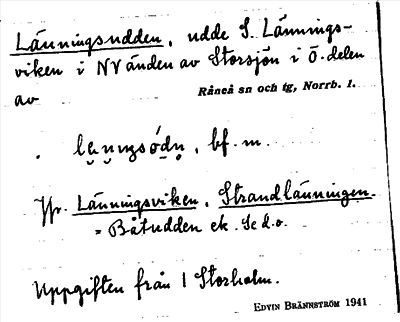 Länningsudden, udde S. Lännings-
viken i NV änden av Storsjön i Ö. delen
av
Råneå sn och tg, Norrb. l.
bf. m.
Jfr. Länningsviken, Strandlänningen.
= Båtudden ek. Se d.o.
Uppgiften från 1 Storholm.
EDVIN BRÄNNSTRÖM 1941